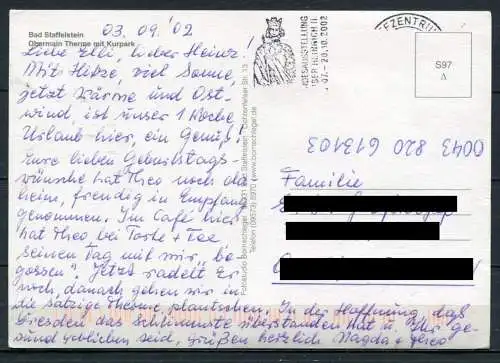 03. 09. '02
Bad Staffelstein
Obermain Therme mit Kurpark
Liebe Elli, lieber Heinz!
Mit Hitze, viel Sonne,
jetzt Wärme und Ost-
wind, ist unser 1 Woche
Urlaub hier, ein Genuß!
Eure lieben Geburtstags-
wünsche hat Theo noch da-
heim, freudig in Empfang
genommen. Im Café hier
hat Theo bei Torte + Tee
seinen Tag mit mir „be-
gossen". Jetzt radelt Er
noch, danach gehen wir in
die salzige Therme, plantschen. In der Hoffnung, daß
Dresden das Schlimmste überstanden hat u. Ihr ge-
sund geblieben seid, grüßen herzlich Magda + Theo
Fotostudio Bornschlegel
Staffelstein
Telefon
www.bornschlegel.de
EZENTRU
LANDESAUSSTELLUNG
KAISER HEINRICH II.
- 20.10.2002
S97
A
0043 820 613103
Familie